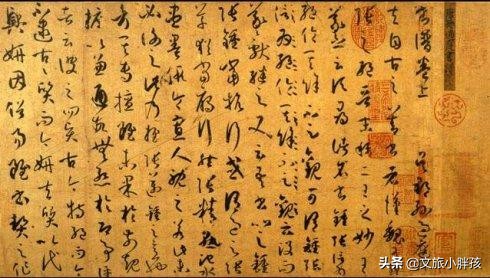 書譜卷上 吳郡孫過庭
夫自古之善書者漢魏有鍾
張之絕晉末稱二王之妙王
羲之云頃尋諸名書鍾張信
為絕倫其餘不足觀可謂鍾張
云沒而
羲獻繼之又云吾書比之
鍾張鍾當抗行或謂過之張
草猶當雁行然張精熟池水
盡墨假令寡人耽之若此未
必謝之此乃推張邁鍾之意也
考其專擅雖未果於前規
摭以兼通故無慚於即事評
者云彼之四賢古今特絕而今
不逮古古質而今妍夫質以代
興妍因俗易雖書契之作
头条 @文旅小胖孩